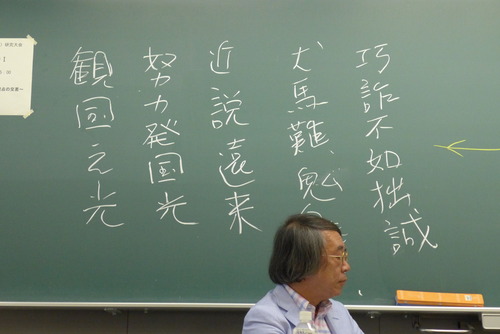 巧詐不如拙誠
犬馬難、鬼
近説遠来
努力発国光
観国之光
研究大会